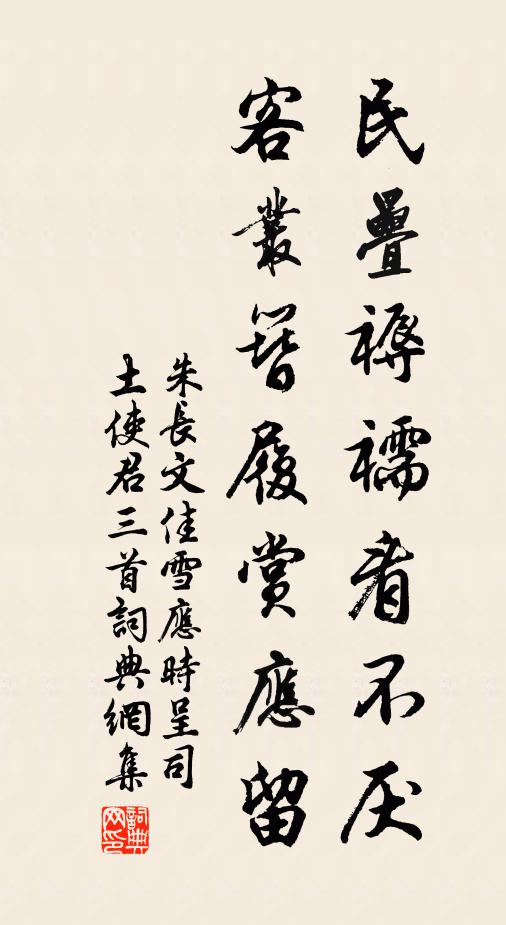 民疊褥襦看不厌
客叢簪履賞應留
朱長文佳雪應時呈司
土使君三首詞典網集
詞典网印